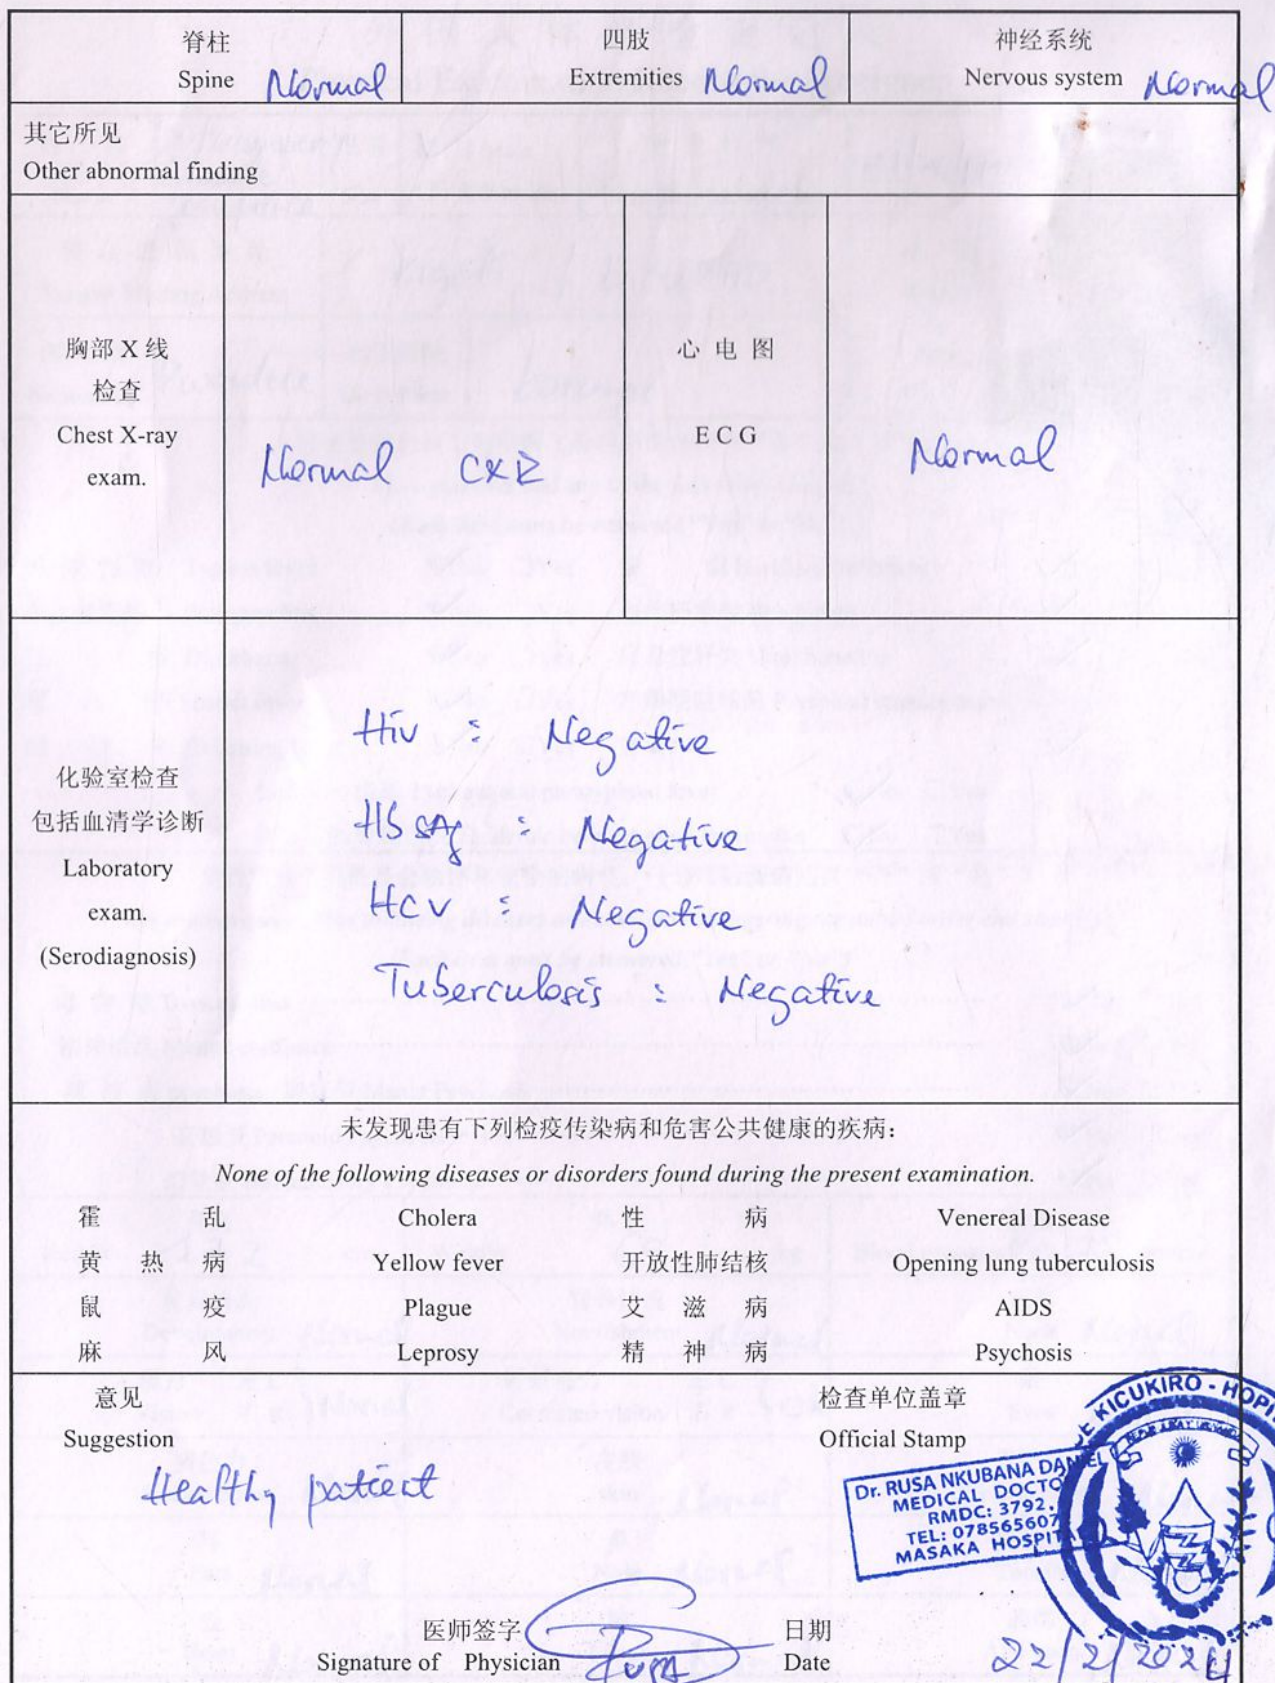 脊柱
Spine Normal
四肢
Extremities Normal
神经系统
Nervous system Normal
其它所见
Other abnormal finding
胸部 X 线
检查
Chest X-ray
exam.
Normal CXR
心 电 图
E C G
Normal
化验室检查
包括血清学诊断
Laboratory
exam.
(Serodiagnosis)
Hiv : Negative
HbsAg : Negative
Hcv : Negative
Tuberculosis : Negative
未发现患有下列检疫传染病和危害公共健康的疾病：
None of the following diseases or disorders found during the present examination.
霍 乱 Cholera 性 病 Venereal Disease
黄 热 病 Yellow fever 开放性肺结核 Opening lung tuberculosis
鼠 疫 Plague 艾 滋 病 AIDS
麻 风 Leprosy 精 神 病 Psychosis
意见
Suggestion
Healthy patient
检查单位盖章
Official Stamp
KICUKIRO - HOPI
Dr. RUSA NKUBANA DANIEL
MEDICAL DOCTO
RMDC: 3792
TEL: 078565607
MASAKA HOSPITA
医师签字
Signature of Physician
日期
Date
22/2/2024